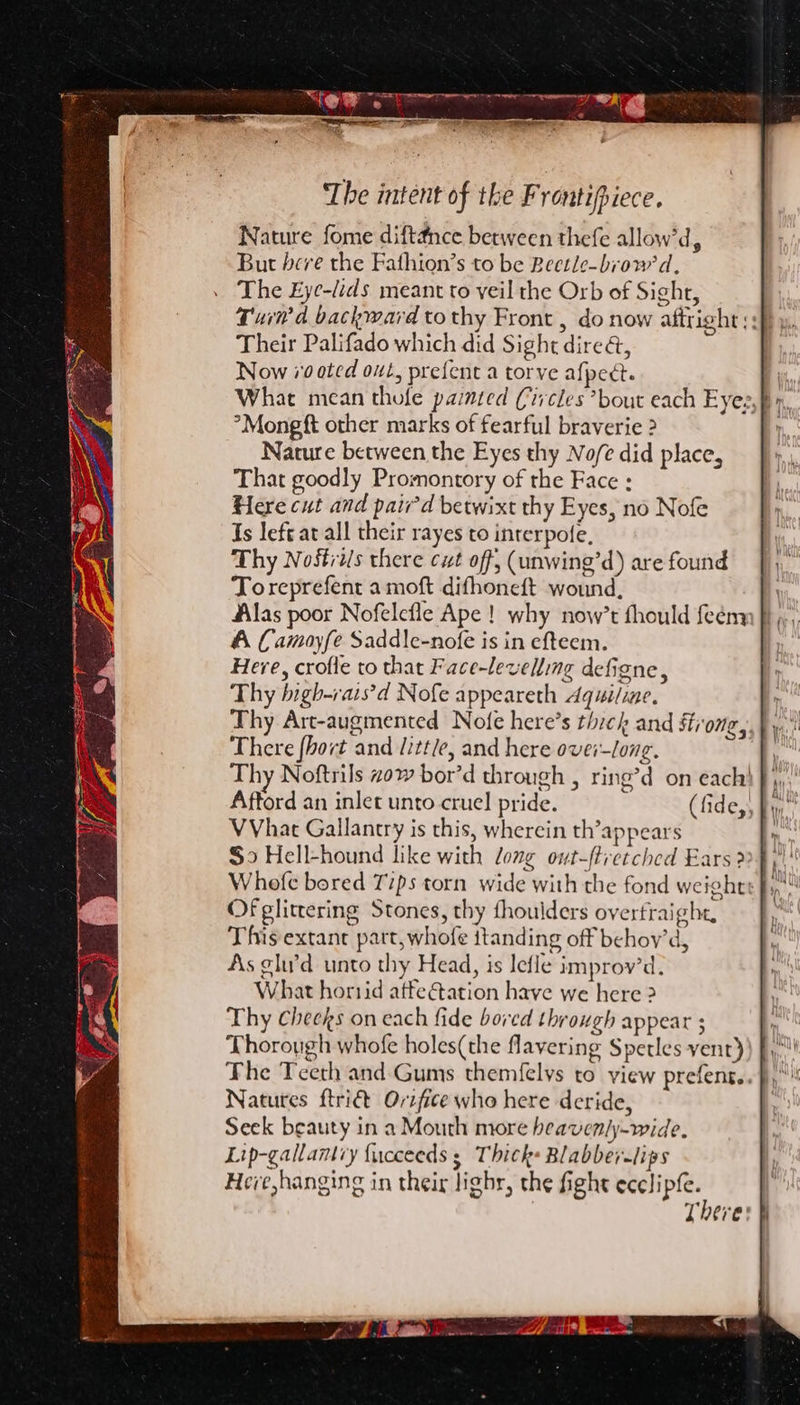 The intent of the Frontiſpiece.
Nature ſome diſtance between theſe allow'd,
But here the Faſhion's to be Beetle-brow'd.
The Eye-lids meant to veil the Orb of Sight,
Turn'd backward to thy Front, do now affright:
Their Paliſado which did Sight direct,
Now rooted out, preſent a torve aſpect.
What mean thoſe painted Circles 'bout each Eye,
'Mongſt other marks of fearful braverie?
Nature between the Eyes thy Noſe did place,
That goodly Promontory of the Face:
Here cut and pair'd betwixt thy Eyes, no Noſe
Is left at all their rayes to interpoſe.
Thy Noſtrils there cut off, (unwing'd) are found
To repreſent a moſt diſhoneſt wound.
Alas poor Noſeleſſe Ape! why now't ſhould ſeem
A Camoyſe Saddle-noſe is in eſteem.
Here, croſſe to that Face-levelling deſigne,
Thy high-rais'd Noſe appeareth Aquiline.
Thy Art-augmented Noſe here's thick and ſtrong,
There ſhort and little, and here over-long.
Thy Noſtrils now bor'd through, ring'd on each
Afford an inlet unto cruel pride. (ſide,
VVhat Gallantry is this, wherein th'appears
So Hell-hound like with long out-ſtretched Ears?
Whoſe bored Tips torn wide with the fond weight
Of glittering Stones, thy ſhoulders overfraight,
This extant part, whoſe ſtanding off behov'd,
As glu'd unto thy Head, is leſſe improv'd.
What horrid affectation have we here?
Thy Cheeks on each ſide bored through appear;
Thorough whoſe holes(the ſlavering Spetles vent)
The Teeth and Gums themſelvs to view preſent.
Natures ſtrict Orifice who here deride,
Seek beauty in a Mouth more heavenly-wide.
Lip-gallantry ſucceeds; Thick Blabber-lips
Here,hanging in their light, the ſight ecclipſe.
There